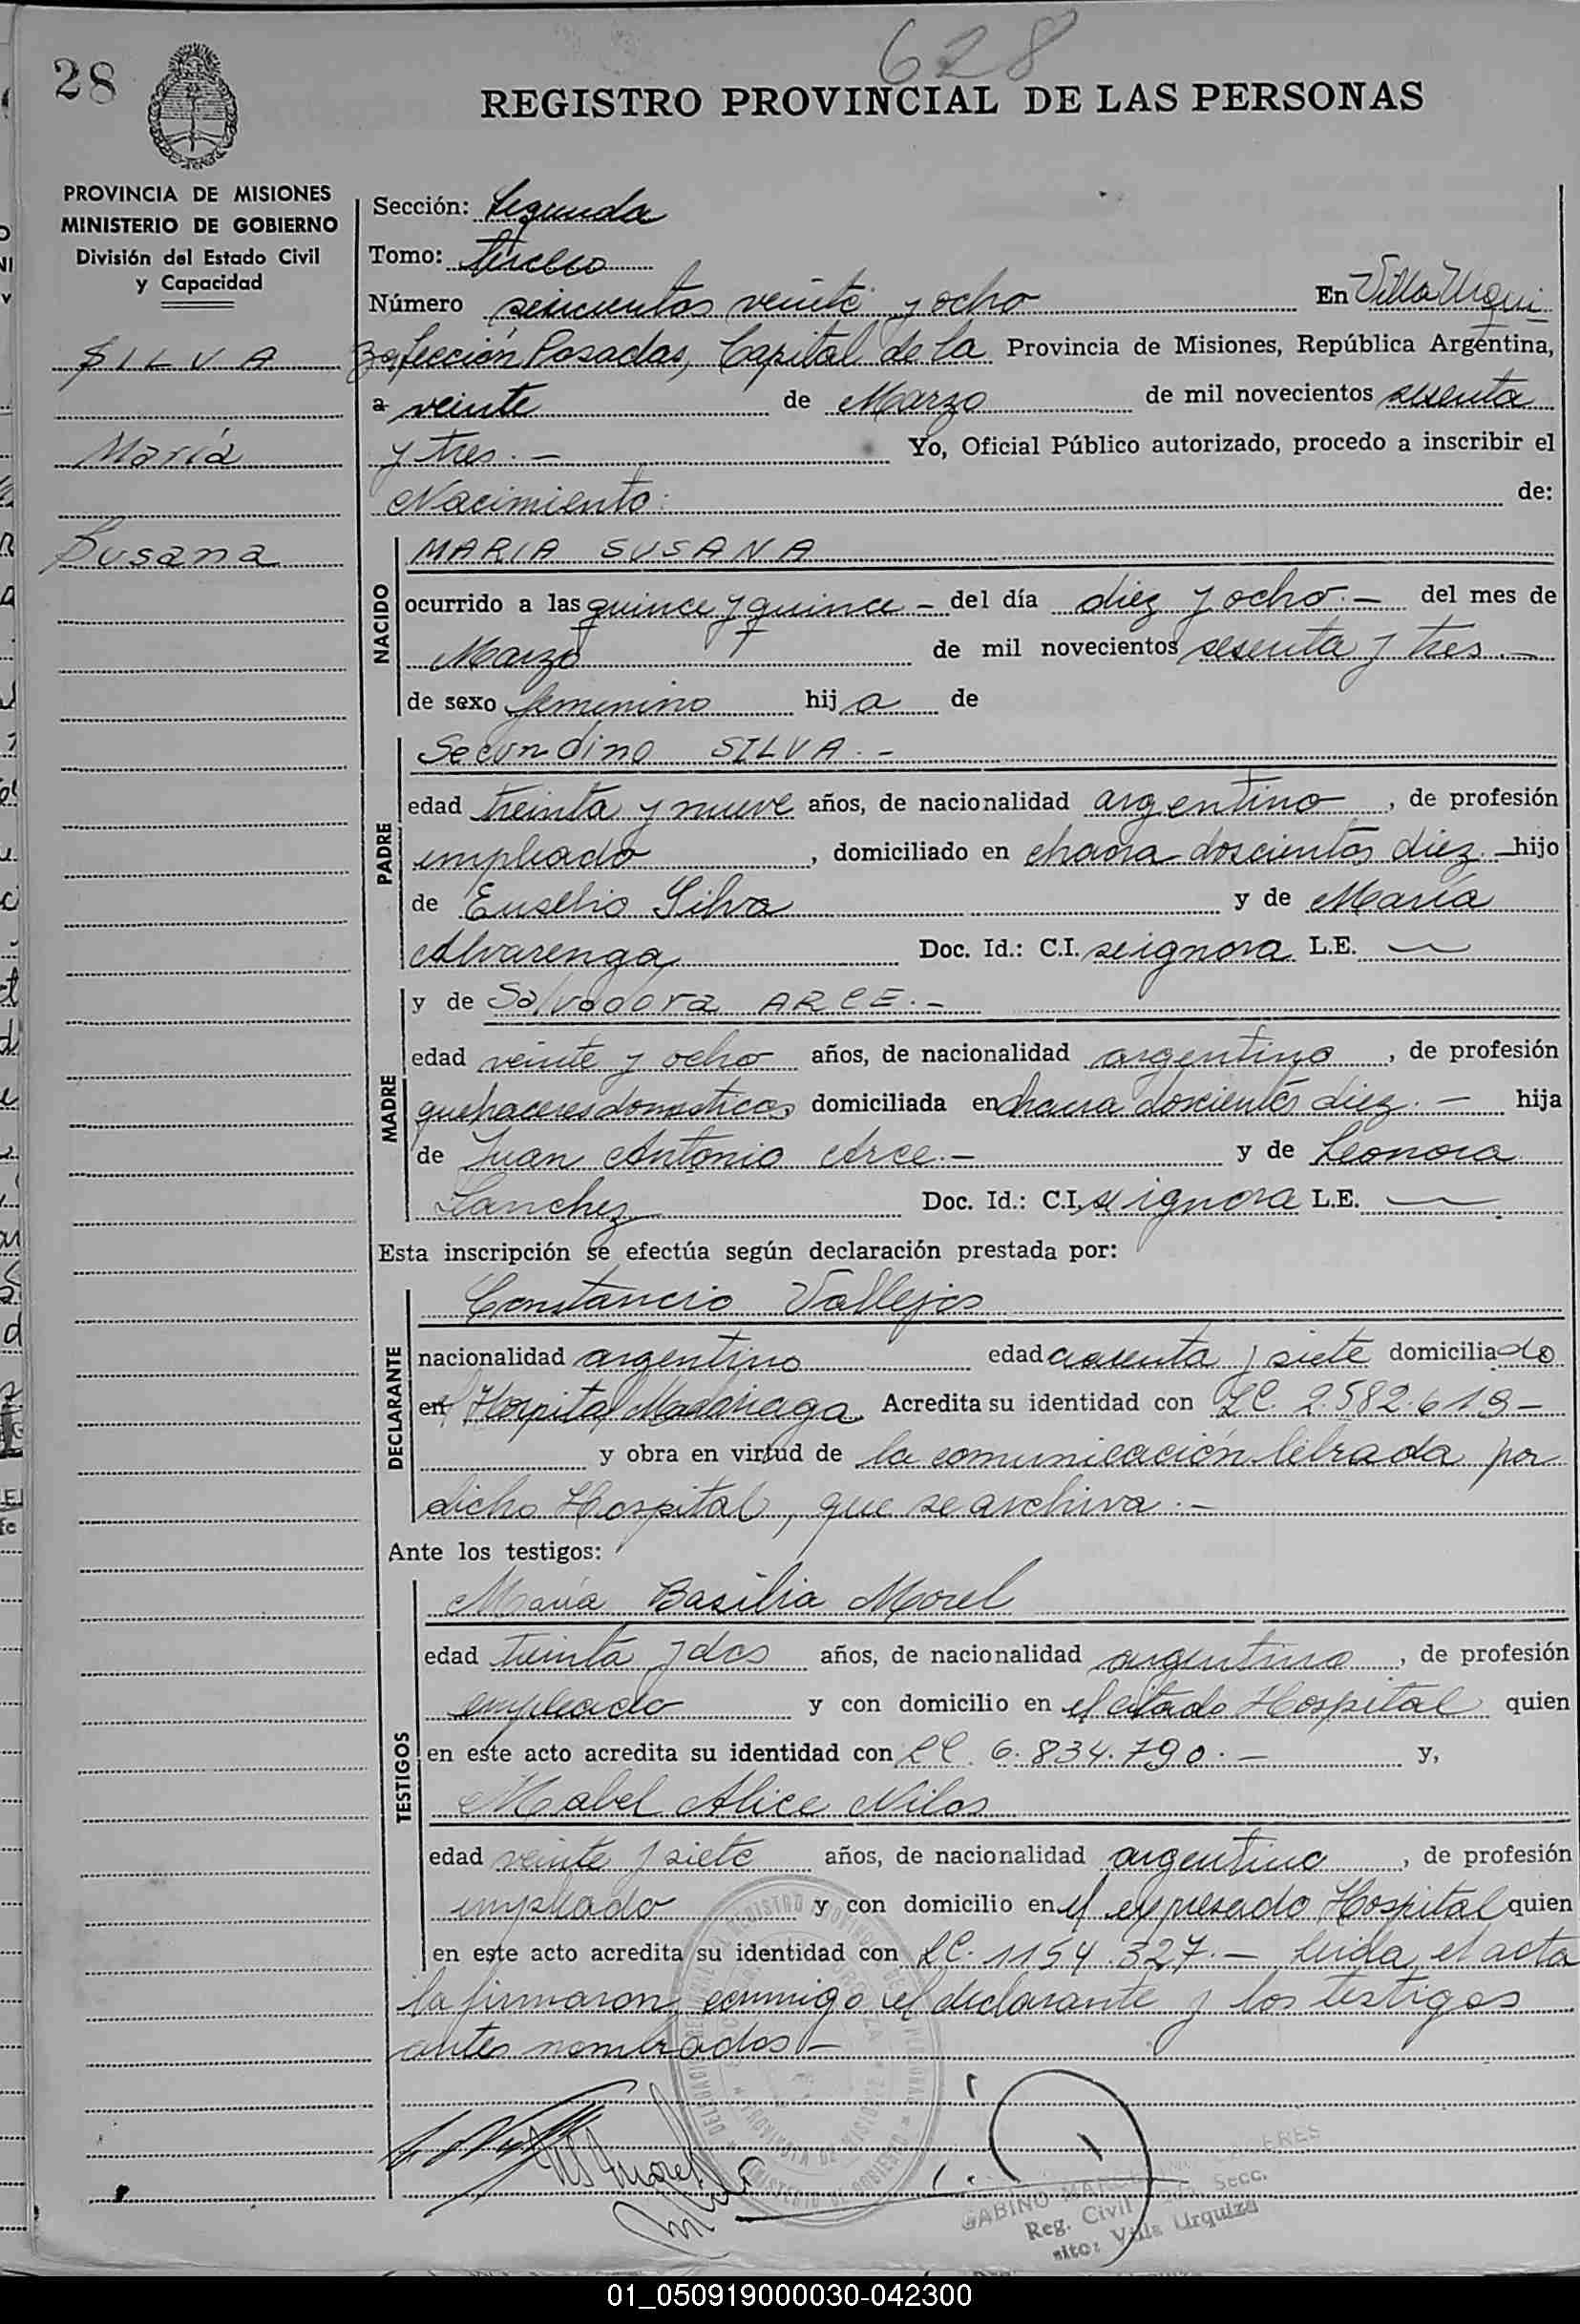 628
28
REGISTRO PROVINCIAL DE LAS PERSONAS
PROVINCIA DE MISIONES
MINISTERIO DE GOBIERNO
División del Estado Civil
y Capacidad
SILVA
María
Susana
Sección: Segunda
Tomo: tercero
Número seiscientos veinte y ocho En Villa Urqui
za, Sección Posadas, Capital de la Provincia de Misiones, República Argentina,
a veinte de Marzo de mil novecientos sesenta
y tres.— Yo, Oficial Público autorizado, procedo a inscribir el
Nacimiento: de:
NACIDO
MARIA SUSANA
ocurrido a las quince y quince — del día diez y ocho.— del mes de
Marzo de mil novecientos sesenta y tres.—
de sexo femenino hija de
PADRE
Secundino SILVA.-
edad treinta y nueve años, de nacionalidad argentino, de profesión
empleado, domiciliado en chacra doscientos diez.— hijo
de Eusebio Silva y de María
Alvarenga Doc. Id.: C.I. se ignora L.E. —
MADRE
y de Salvadora ARCE.-
edad veinte y ocho años, de nacionalidad argentina, de profesión
quehaceres domesticos domiciliada en chacra doscientos diez.— hija
de Juan Antonio Arce.— y de Leonora
Sanchez Doc. Id.: C.I. se ignora L.E. —
Esta inscripción se efectúa según declaración prestada por:
DECLARANTE
Constancio Vallejos
nacionalidad argentino edad cuarenta y siete domiciliado
en Hospital Madariaga. Acredita su identidad con LC. 2.582.619—
y obra en virtud de la comunicación librada por
dicho Hospital, que se archiva.—
Ante los testigos:
TESTIGOS
María Basilia Morel
edad treinta y dos años, de nacionalidad argentina, de profesión
empleado y con domicilio en el citado Hospital quien
en este acto acredita su identidad con LC. 6.834.790.— y,
Mabel Alice Nilos
edad veinte y siete años, de nacionalidad argentina, de profesión
empleado y con domicilio en el expresado Hospital quien
en este acto acredita su identidad con LC. 1154.327.— Leida el acta
la firmaron conmigo el declarante y los testigos
antes nombrados—
GABINO
Reg. Civil Secc.
Villa Urquiza
01_050919000030-042300